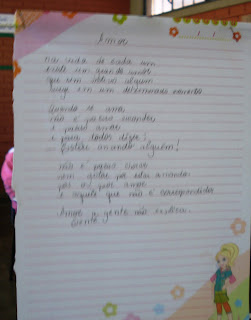 Amor
Na vida de cada um
existe um grande amor
que em todos alguém
surge em um determinado momento
Quando se ama
não é preciso esconder
é preciso amar
e para todos dizer:
— Estou amando alguém!
não é preciso chorar
nem gritar por estar amando
pois o pior amor
é aquele que não é correspondido
Amor a gente não explica
Sente.